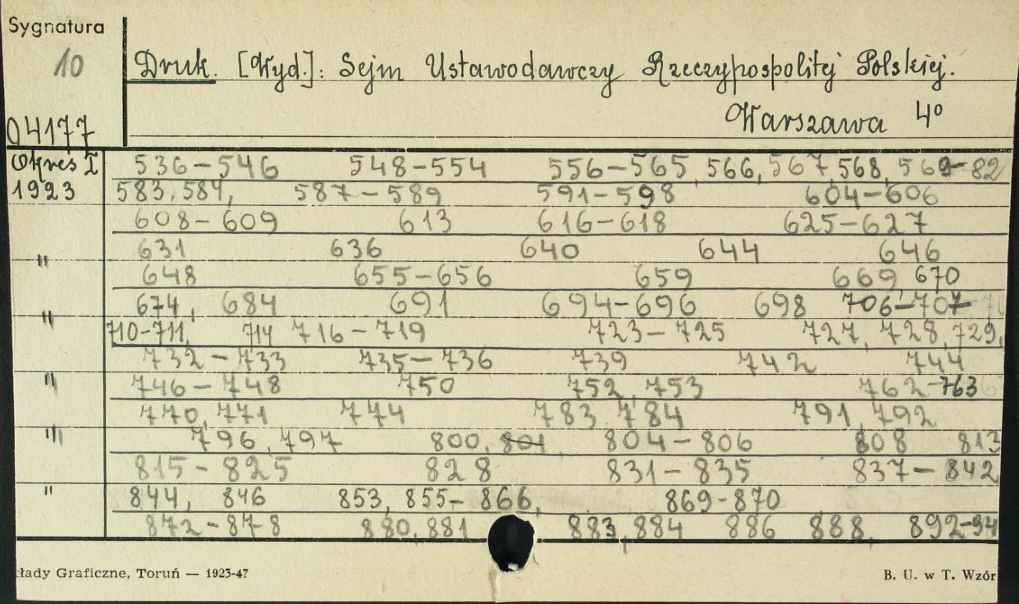 Sygnatura
10
Druk. [Wyd.]: Sejm Ustawodawczy Rzeczypospolitej Polskiej.
Warszawa 4º
04177
Okres I 536-546 548-554 556-565, 566, 567, 568, 569-82
1923 583, 584, 587-589 591-598 604-606
608-609 613 616-618 625-627
631 636 640 644 646
" 648 655-656 659 669 670
674, 684 691 694-696 698 706-707
" 710-711, 714 716-719 723-725 727, 728, 729,
732-733 735-736 739 742 744
" 746-748 750 752, 753 762-763
770, 771 774 783, 784 791, 792
" 796, 797 800, 801 804-806 808 813
815-825 828 831-835 837-842
" 844, 846 853, 855-866, 869-870
872-878 880, 881 883, 884 886 888, 892-94
kłady Graficzne, Toruń — 1923-47 B. U. w T. Wzór